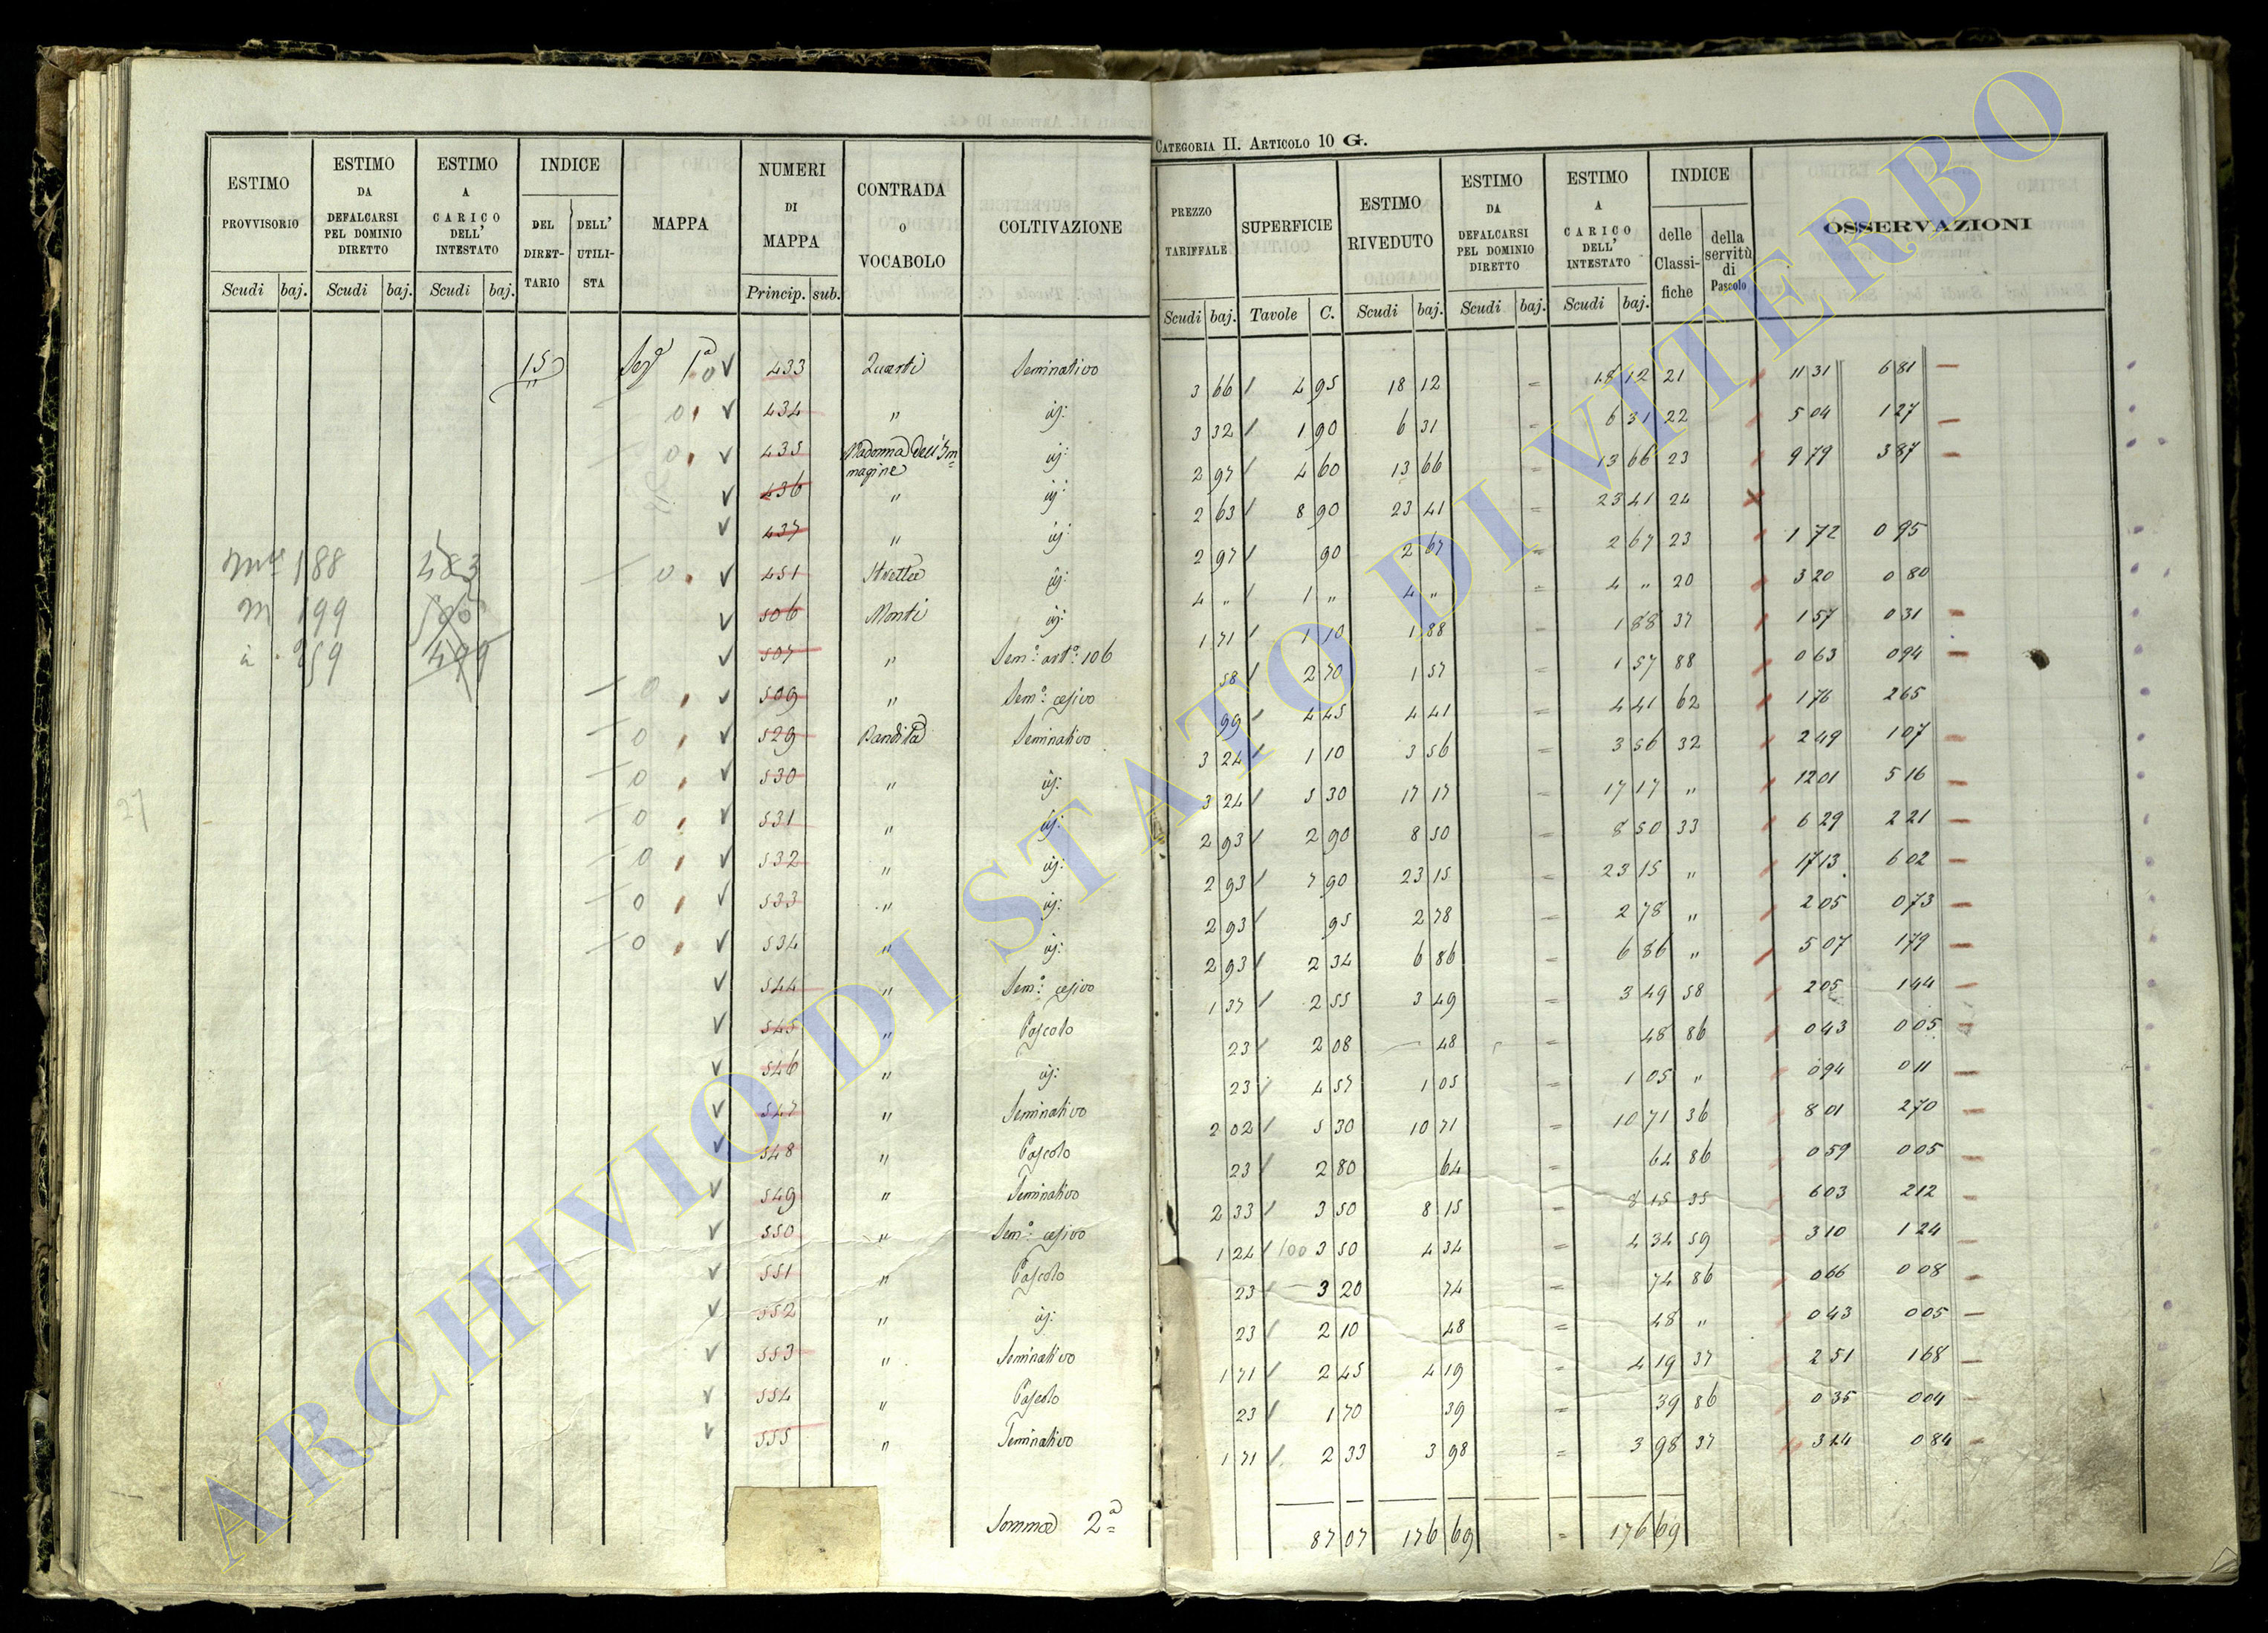 CATEGORIA II. ARTICOLO 10 G.
ESTIMO PROVVISORIO | ESTIMO DA DEFALCARSI PEL DOMINIO DIRETTO | ESTIMO A CARICO DELL' INTESTATO | INDICE | MAPPA | NUMERI DI MAPPA | CONTRADA O VOCABOLO | COLTIVAZIONE | PREZZO TARIFFALE | SUPERFICIE | ESTIMO RIVEDUTO | ESTIMO DA DEFALCARSI PEL DOMINIO DIRETTO | ESTIMO A CARICO DELL' INTESTATO | INDICE | OSSERVAZIONI
DEL DIRET-TARIO | DELL' UTILI-STA | delle Classi-fiche | della servitù di Pascolo
Scudi | baj. | Scudi | baj. | Scudi | baj. | Princip. | sub. | Scudi | baj. | Tavole | C. | Scudi | baj. | Scudi | baj. | Scudi | baj.
15 | Sez 1a | 433 | Quarti | Seminativo | 3 66 | 4 95 | 18 12 | = | 18 12 | 21 | 11 31 | 6 81
434 | " | id: | 3 32 | 1 90 | 6 31 | = | 6 31 | 22 | 5 04 | 1 27
435 | Madonna dell'Im=magine | id: | 2 97 | 4 60 | 13 66 | = | 13 66 | 23 | 9 79 | 3 87
436 | " | id: | 2 63 | 8 90 | 23 41 | = | 23 41 | 24
437 | " | id: | 2 97 | 90 | 2 67 | = | 2 67 | 23 | 1 72 | 0 95
188 | 483 | 451 | Stretta | id: | 4 " | 1 " | 4 " | = | 4 " | 20 | 3 20 | 0 80
m 199 | 506 | Monti | id: | 1 71 | 1 10 | 1 88 | = | 1 88 | 37 | 1 57 | 0 31
259 | 499 | 507 | " | Sem.o art.o 106 | 58 | 2 70 | 1 57 | = | 1 57 | 88 | 0 63 | 0 94
509 | " | Sem.o cesivo | 99 | 4 45 | 4 41 | = | 4 41 | 62 | 1 76 | 2 65
529 | Bandita | Seminativo | 3 24 | 1 10 | 3 56 | = | 3 56 | 32 | 2 49 | 1 07
530 | " | id: | 3 24 | 5 30 | 17 17 | = | 17 17 | " | 12 01 | 5 16
27 | 531 | " | id: | 2 93 | 2 90 | 8 50 | = | 8 50 | 33 | 6 29 | 2 21
532 | " | id: | 2 93 | 7 90 | 23 15 | = | 23 15 | " | 17 13 | 6 02
533 | " | id: | 2 93 | 95 | 2 78 | = | 2 78 | " | 2 05 | 0 73
534 | " | id: | 2 93 | 2 34 | 6 86 | = | 6 86 | " | 5 07 | 1 79
544 | " | Sem.o cesivo | 1 37 | 2 55 | 3 49 | = | 3 49 | 58 | 2 05 | 1 44
545 | " | Pascolo | 23 | 2 08 | 48 | = | 48 | 86 | 0 43 | 0 05
546 | " | id: | 23 | 4 57 | 1 05 | = | 1 05 | " | 0 94 | 0 11
547 | " | Seminativo | 2 02 | 5 30 | 10 71 | = | 10 71 | 36 | 8 01 | 2 70
548 | " | Pascolo | 23 | 2 80 | 64 | = | 64 | 86 | 0 59 | 0 05
549 | " | Seminativo | 2 33 | 3 50 | 8 15 | = | 8 15 | 35 | 6 03 | 2 12
550 | " | Sem.o cesivo | 1 24 | 100 | 3 50 | 4 34 | = | 4 34 | 59 | 3 10 | 1 24
551 | " | Pascolo | 23 | 3 20 | 74 | = | 74 | 86 | 0 66 | 0 08
552 | " | id: | 23 | 2 10 | 48 | = | 48 | " | 0 43 | 0 05
553 | " | Seminativo | 1 71 | 2 45 | 4 19 | = | 4 19 | 37 | 2 51 | 1 68
554 | " | Pascolo | 23 | 1 70 | 39 | = | 39 | 86 | 0 35 | 0 04
555 | " | Seminativo | 1 71 | 2 33 | 3 98 | = | 3 98 | 37 | 3 14 | 0 84
Somma 2a | 87 07 | 176 69 | = | 176 69
ARCHIVIO DI STATO DI VITERBO